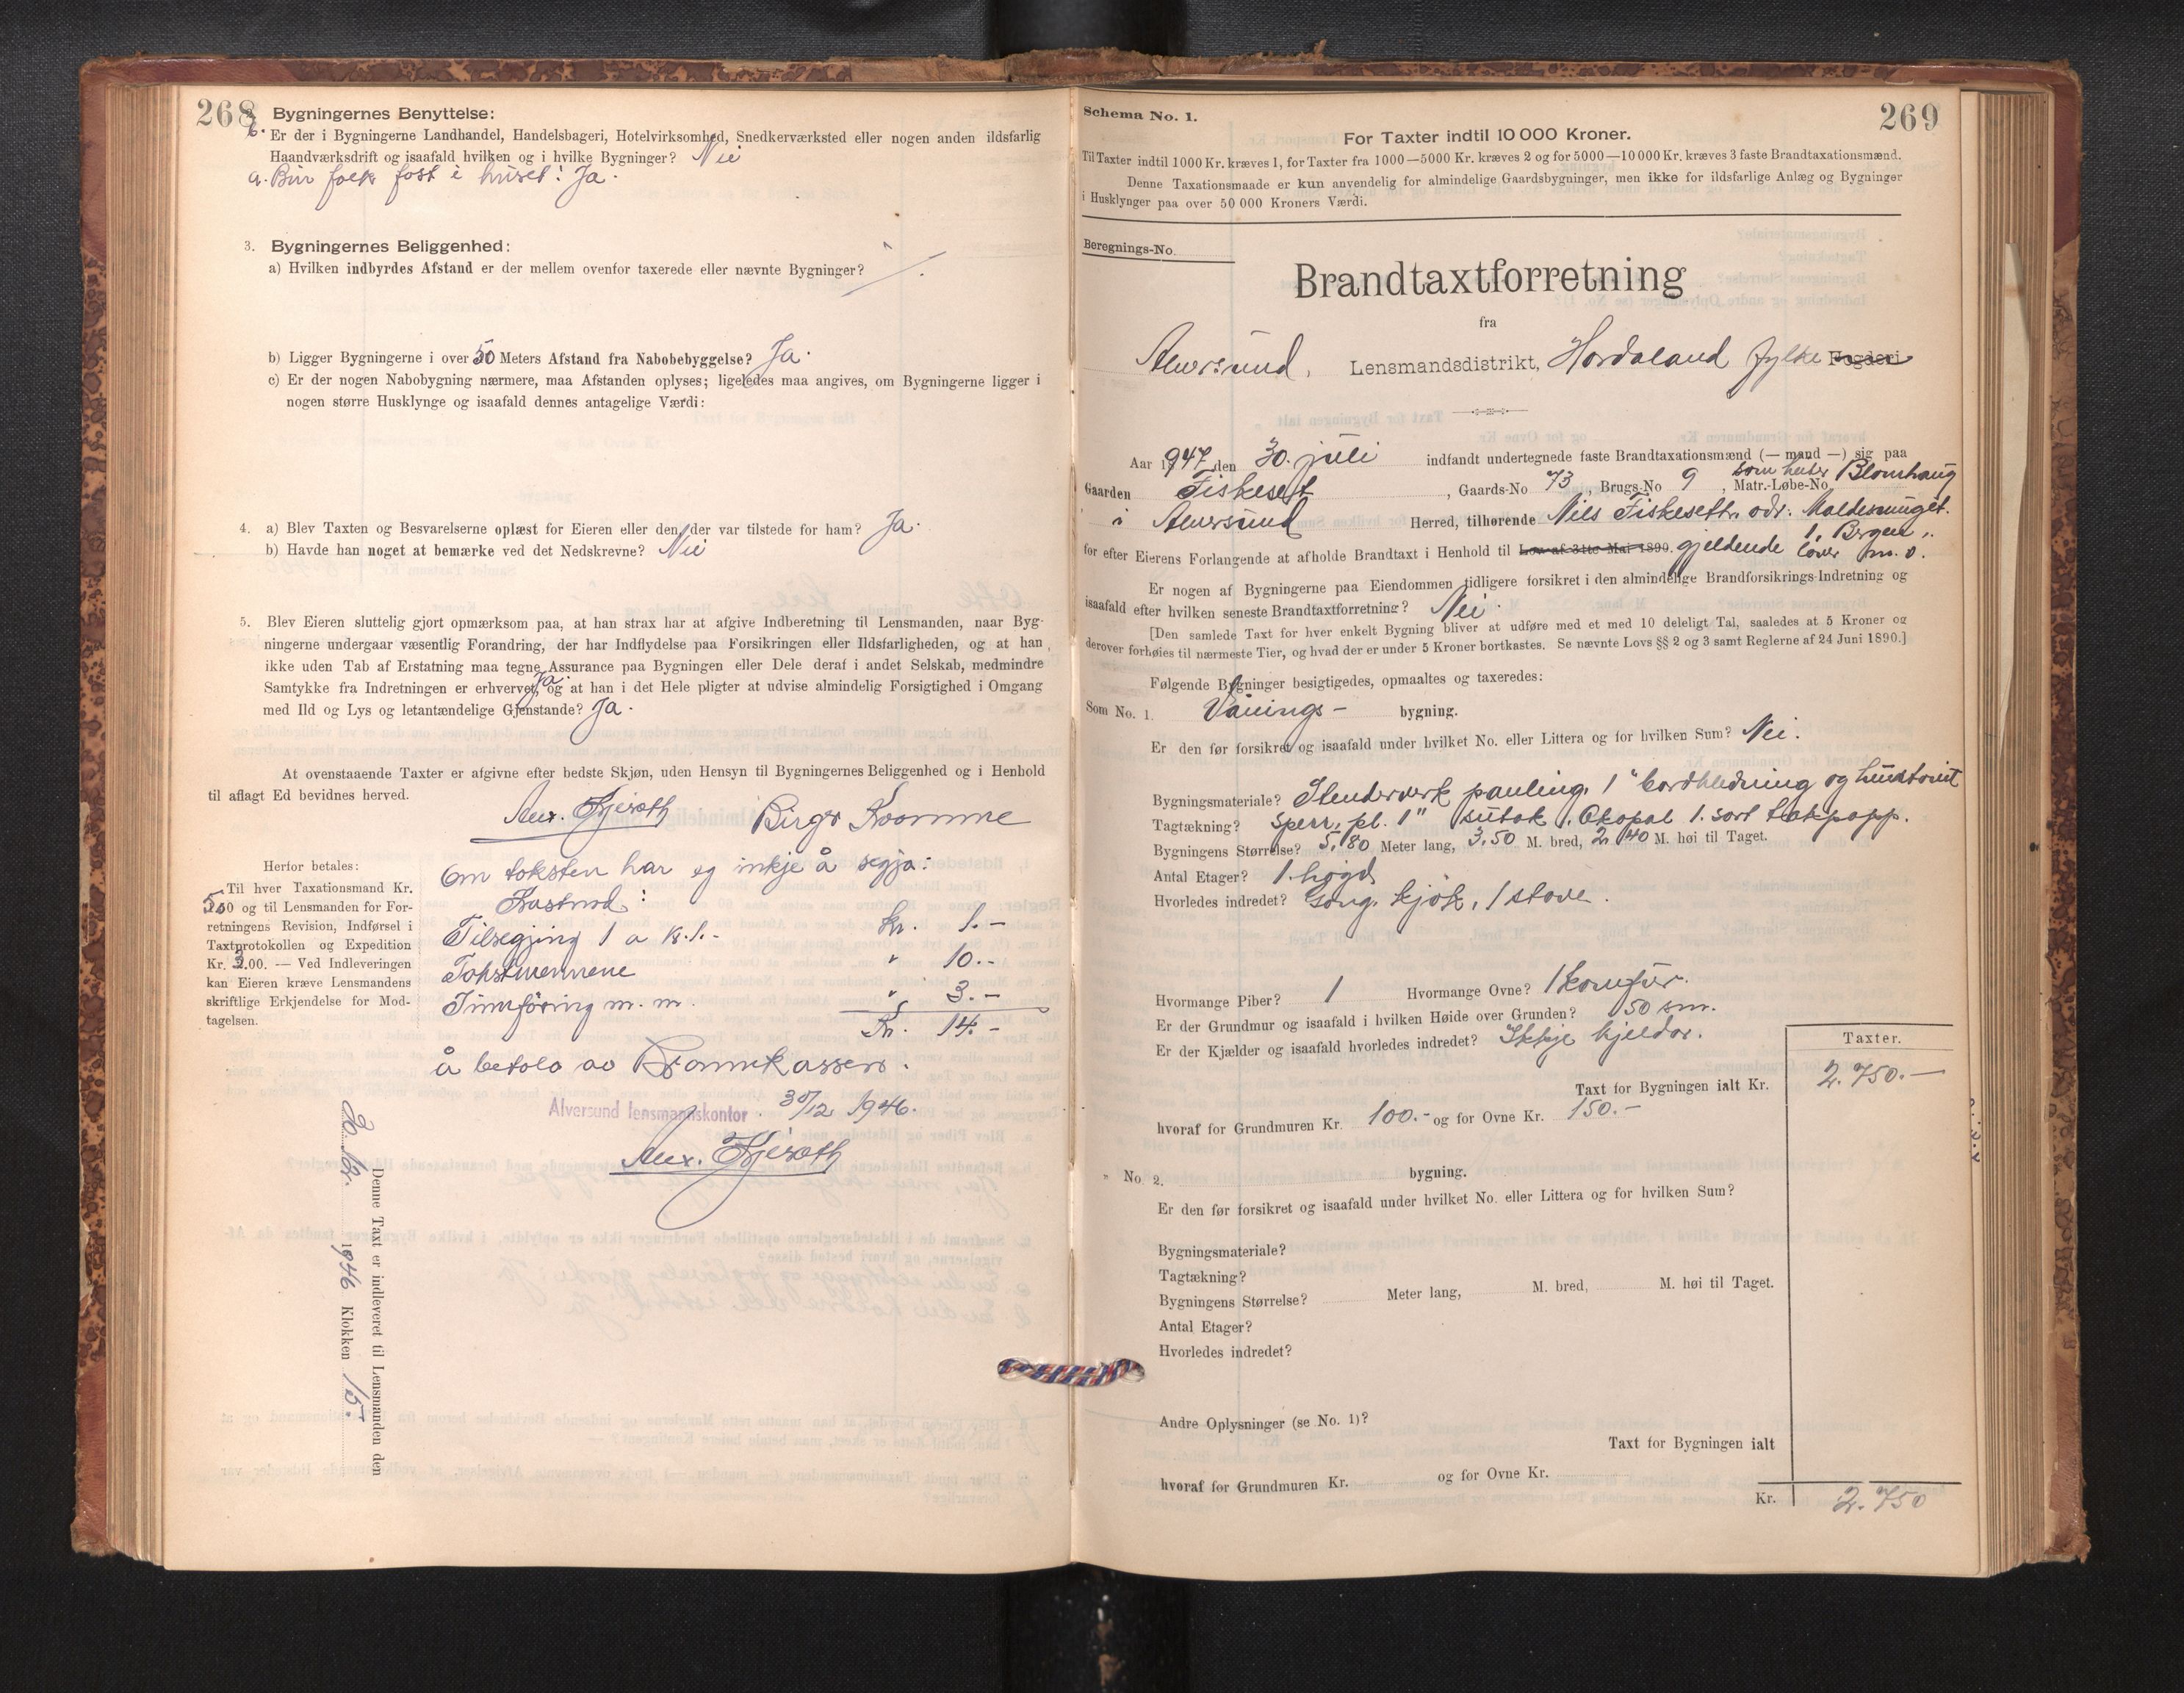 268
Bygningernes Benyttelse:
b. Er der i Bygningerne Landhandel, Handelsbageri, Hotelvirksomhed, Snedkerværksted eller nogen anden ildsfarlig
Haandværksdrift og isaafald hvilken og i hvilke Bygninger? Nei
a. Bur folk fast i huset: Ja.
3. Bygningernes Beliggenhed:
a) Hvilken indbyrdes Afstand er der mellem ovenfor taxerede eller nævnte Bygninger?
b) Ligger Bygningerne i over 50 Meters Afstand fra Nabobebyggelse? Ja.
c) Er der nogen Nabobygning nærmere, maa Afstanden oplyses; ligeledes maa angives, om Bygningerne ligger i
nogen større Husklynge og isaafald dennes antagelige Værdi:
4. a) Blev Taxten og Besvarelserne oplæst for Eieren eller den, der var tilstede for ham? Ja.
b) Havde han noget at bemærke ved det Nedskrevne? Nei
5. Blev Eieren sluttelig gjort opmærksom paa, at han strax har at afgive Indberetning til Lensmanden, naar Byg-
ningerne undergaar væsentlig Forandring, der har Indflydelse paa Forsikringen eller Ildsfarligheden, og at han
ikke uden Tab af Erstatning maa tegne Assurance paa Bygningen eller Dele deraf i andet Selskab, medmindre
Samtykke fra Indretningen er erhvervet, Ja. og at han i det Hele pligter at udvise almindelig Forsigtighed i Omgang
med Ild og Lys og letantændelige Gjenstande? Ja.
At ovenstaaende Taxter er afgivne efter bedste Skjøn, uden Hensyn til Bygningernes Beliggenhed og i Henhold
til aflagt Ed bevidnes herved.
Birger
Herfor betales:
Til hver Taxationsmand Kr.
5.00 og til Lensmanden for For-
retningens Revision, Indførsel i
Taxtprotokollen og Expedition
Kr. 3.00. — Ved Indleveringen
kan Eieren kræve Lensmandens
skriftlige Erkjendelse for Mod-
tagelsen.
Om taksten har eg inkje å segja:
Kostnad:
Tilsegjing 1 a kr. 1.- Kr. 1.-
Takstmennene " 10.-
Innføring m. m. " 3.-
Kr. 14.-
å betala av Brannkassen.
Alversund lensmannskontor. 30/12 1946.
Denne Taxt er indleveret til Lensmanden den
30/12. 1946 Klokken 15.
269
Schema No. 1.
For Taxter indtil 10 000 Kroner.
Til Taxter indtil 1000 Kr. kræves 1, for Taxter fra 1000—5000 Kr. kræves 2 og for 5000—10 000 Kr. kræves 3 faste Brandtaxationsmænd.
Denne Taxationsmaade er kun anvendelig for almindelige Gaardsbygninger, men ikke for ildsfarlige Anlæg og Bygninger
i Husklynger paa over 50 000 Kroners Værdi.
Beregnings-No.
Brandtaxtforretning
fra
Alversund, Lensmandsdistrikt, Hordaland fylke Fogderi
Aar 1947 den 30. juli indfandt undertegnede faste Brandtaxationsmænd (— mand —) sig paa
Gaarden Fiskeset, Gaards-No 73, Brugs-No 9, Matr.-Løbe-No. som heiter Blomhaug
i Alversund Herred, tilhørende Nils Fiskeseth, adr:
1, Bergen,
for efter Eierens Forlangende at afholde Brandtaxt i Henhold til Lov af 3die Mai 1890. gjeldende lover m. v.
Er nogen af Bygningerne paa Eiendommen tidligere forsikret i den almindelige Brandforsikrings-Indretning og
isaafald efter hvilken seneste Brandtaxtforretning? Nei.
[Den samlede Taxt for hver enkelt Bygning bliver at udføre med et med 10 deleligt Tal, saaledes at 5 Kroner og
derover forhøies til nærmeste Tier, og hvad der er under 5 Kroner bortkastes. Se nævnte Lovs §§ 2 og 3 samt Reglerne af 24 Juni 1890.]
Følgende Bygninger besigtigedes, opmaaltes og taxeredes:
Som No. 1. Vånings- bygning.
Er den før forsikret og isaafald under hvilket No. eller Littera og for hvilken Sum? Nei.
Bygningsmateriale? Stenderverk pauling, 1" bordkledning og
Tagtækning? Sperr, pl. 1" sutak, 1. sort takpapp.
Bygningens Størrelse? 5,80 Meter lang, 3,50 M. bred, 2,40 M. høi til Taget.
Antal Etager? 1. høgd
Hvorledes indredet? Gong, kjøk, 1 stove.
Hvormange Piber? 1 Hvormange Ovne? 1 komfyr.
Er der Grundmur og isaafald i hvilken Høide over Grunden? 50 sm.
Er der Kjælder og isaafald hvorledes indredet? Ikkje kjeldar.
Taxter.
Taxt for Bygningen ialt Kr. 2.750.—
hvoraf for Grundmuren Kr. 100.- og for Ovne Kr. 150.-
" No. 2. bygning.
Er den før forsikret og isaafald under hvilket No. eller Littera og for hvilken Sum?
Bygningsmateriale?
Tagtækning?
Bygningens Størrelse? Meter lang, M. bred, M. høi til Taget.
Antal Etager?
Hvorledes indredet?
Andre Oplysninger (se No. 1)?
Taxt for Bygningen ialt
hvoraf for Grundmuren Kr. og for Ovne Kr.
Kr. 2.750